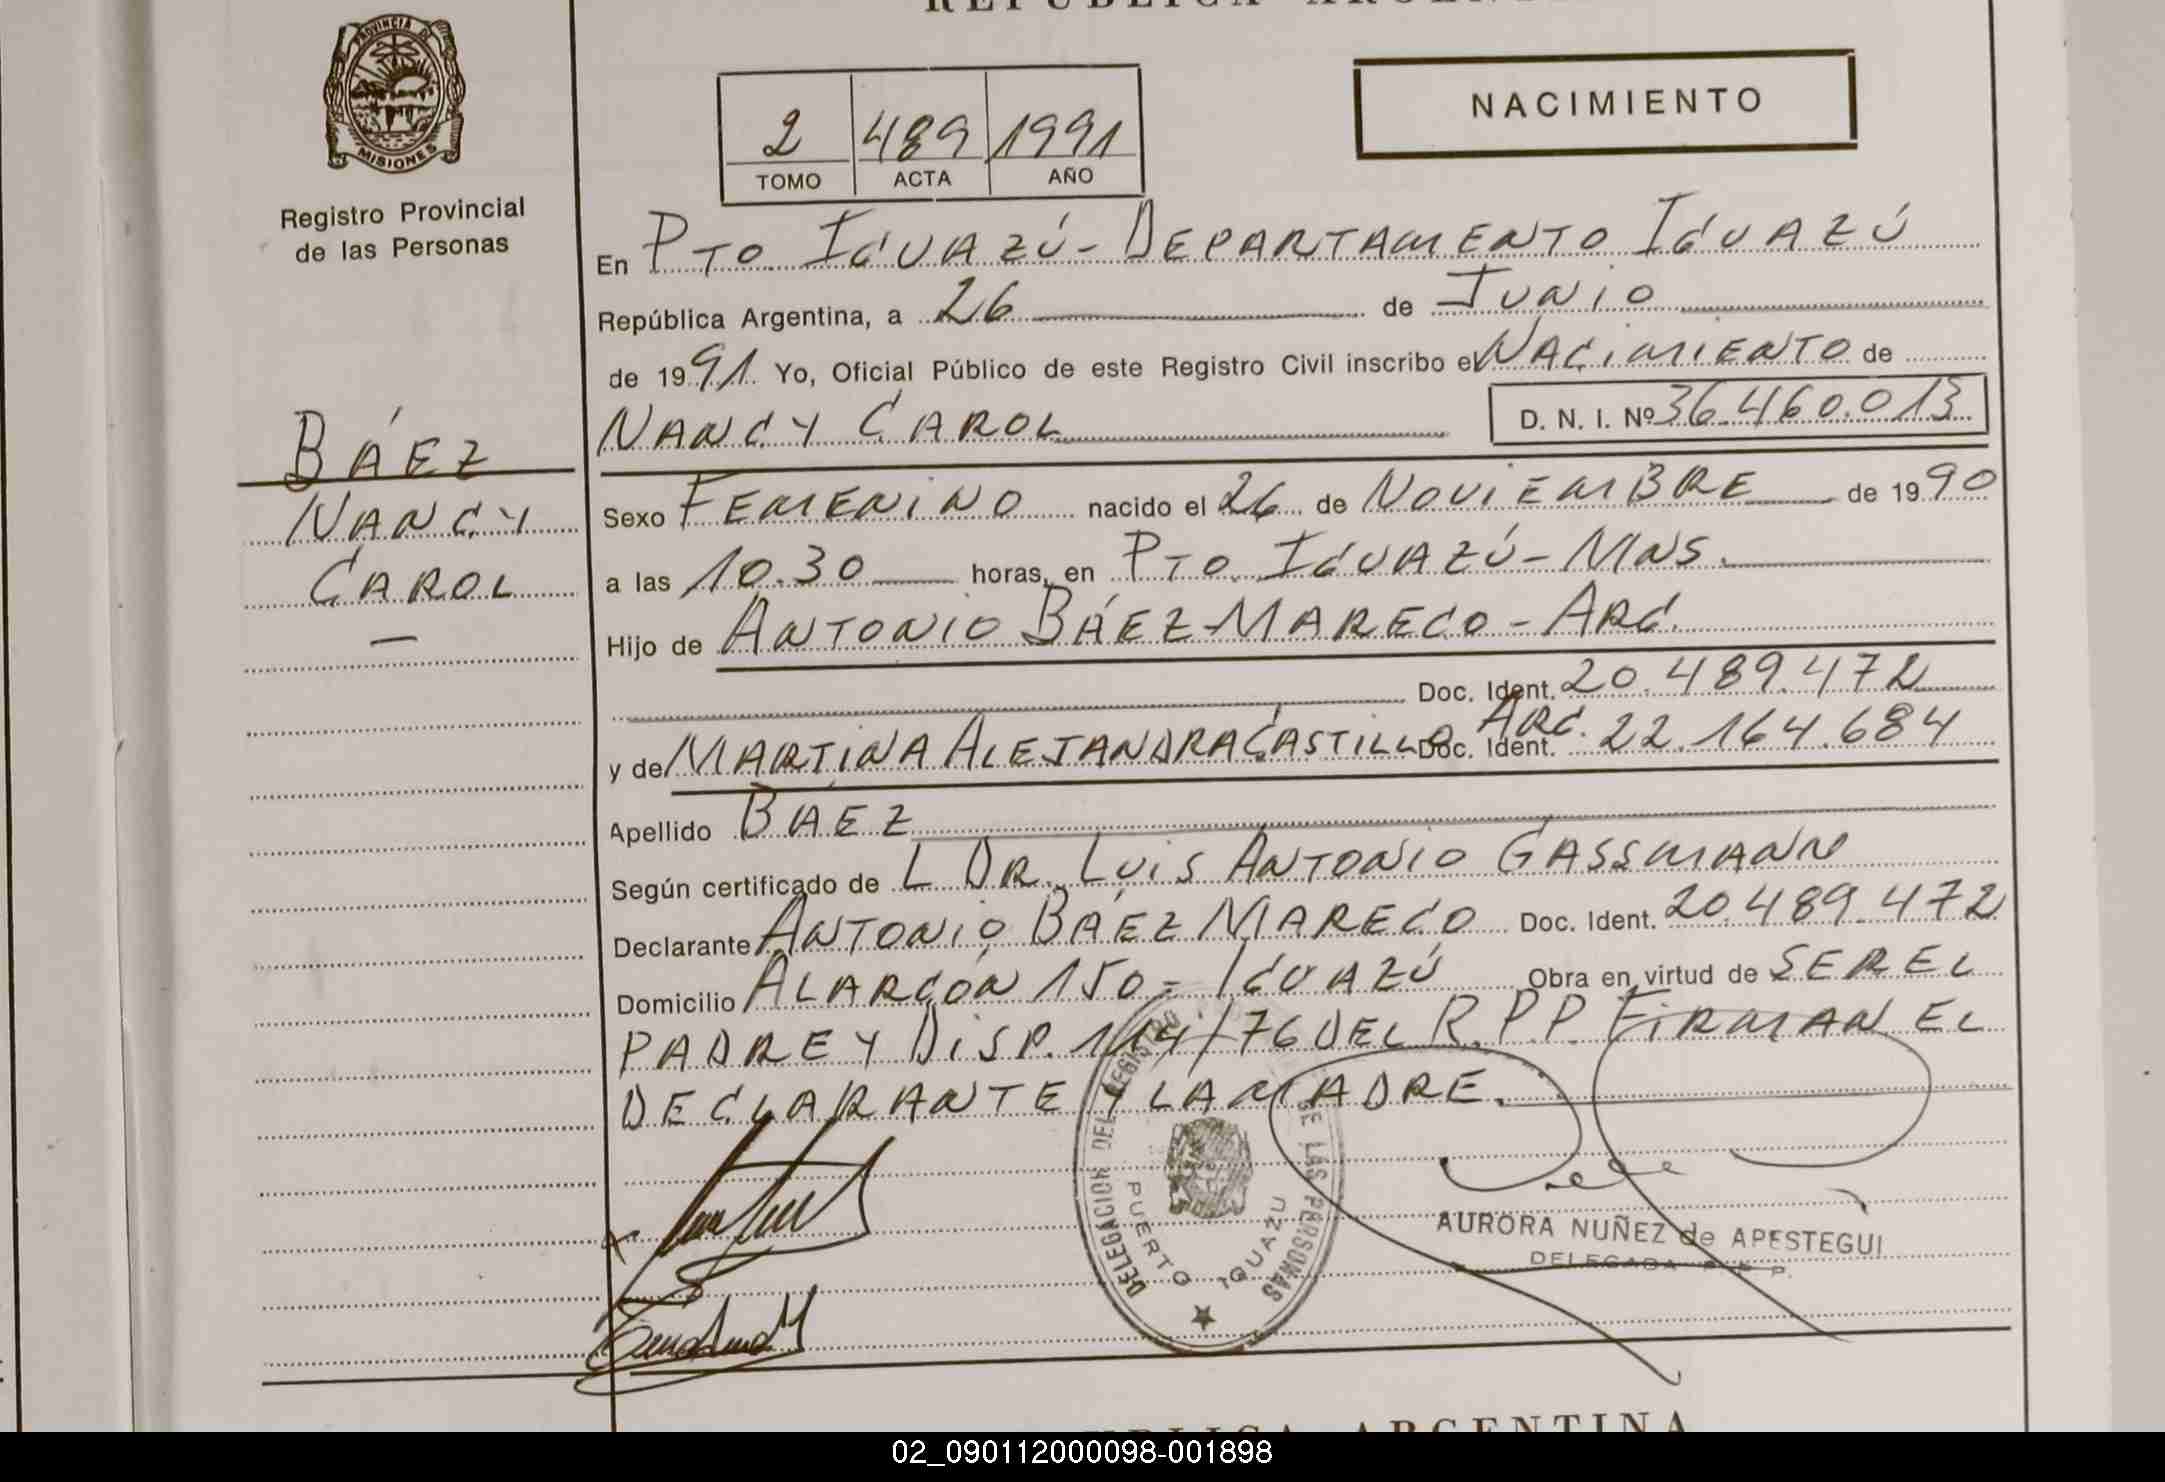 REPUBLICA ARGENTI
PROVINCIA DE
MISIONES
Registro Provincial
de las Personas
2 489 1991
TOMO ACTA AÑO
NACIMIENTO
En PTO. IGUAZÚ - DEPARTAMENTO IGUAZÚ
República Argentina, a 26 de JUNIO
de 1991. Yo, Oficial Público de este Registro Civil inscribo el NACIMIENTO de
NANCY CAROL D. N. I. Nº 36.460.013
BÁEZ
NANCY
CAROL
—
Sexo FEMENINO nacido el 26 de NOVIEMBRE de 1990
a las 10.30 horas, en PTO. IGUAZÚ - MNS.
Hijo de ANTONIO BÁEZ MARECO - ARG.
Doc. Ident. 20.489.472
y de MARTINA ALEJANDRA CASTILLO ARG. Doc. Ident. 22.164.684
Apellido BÁEZ
Según certificado de L DR. LUIS ANTONIO GASSMANN
Declarante ANTONIO BÁEZ MARECO Doc. Ident. 20.489.472
Domicilio ALARCÓN 150 - IGUAZÚ Obra en virtud de SER EL
PADRE Y DISP. 114/76 DEL R.P.P. FIRMAN EL
DECLARANTE Y LA MADRE.
DELEGACION DEL REGISTRO DE LAS PERSONAS
PUERTO IGUAZU
AURORA NUÑEZ de APESTEGUI
DELEGADA R. P. P.
UBLICA ARGENTINA
02_090112000098-001898